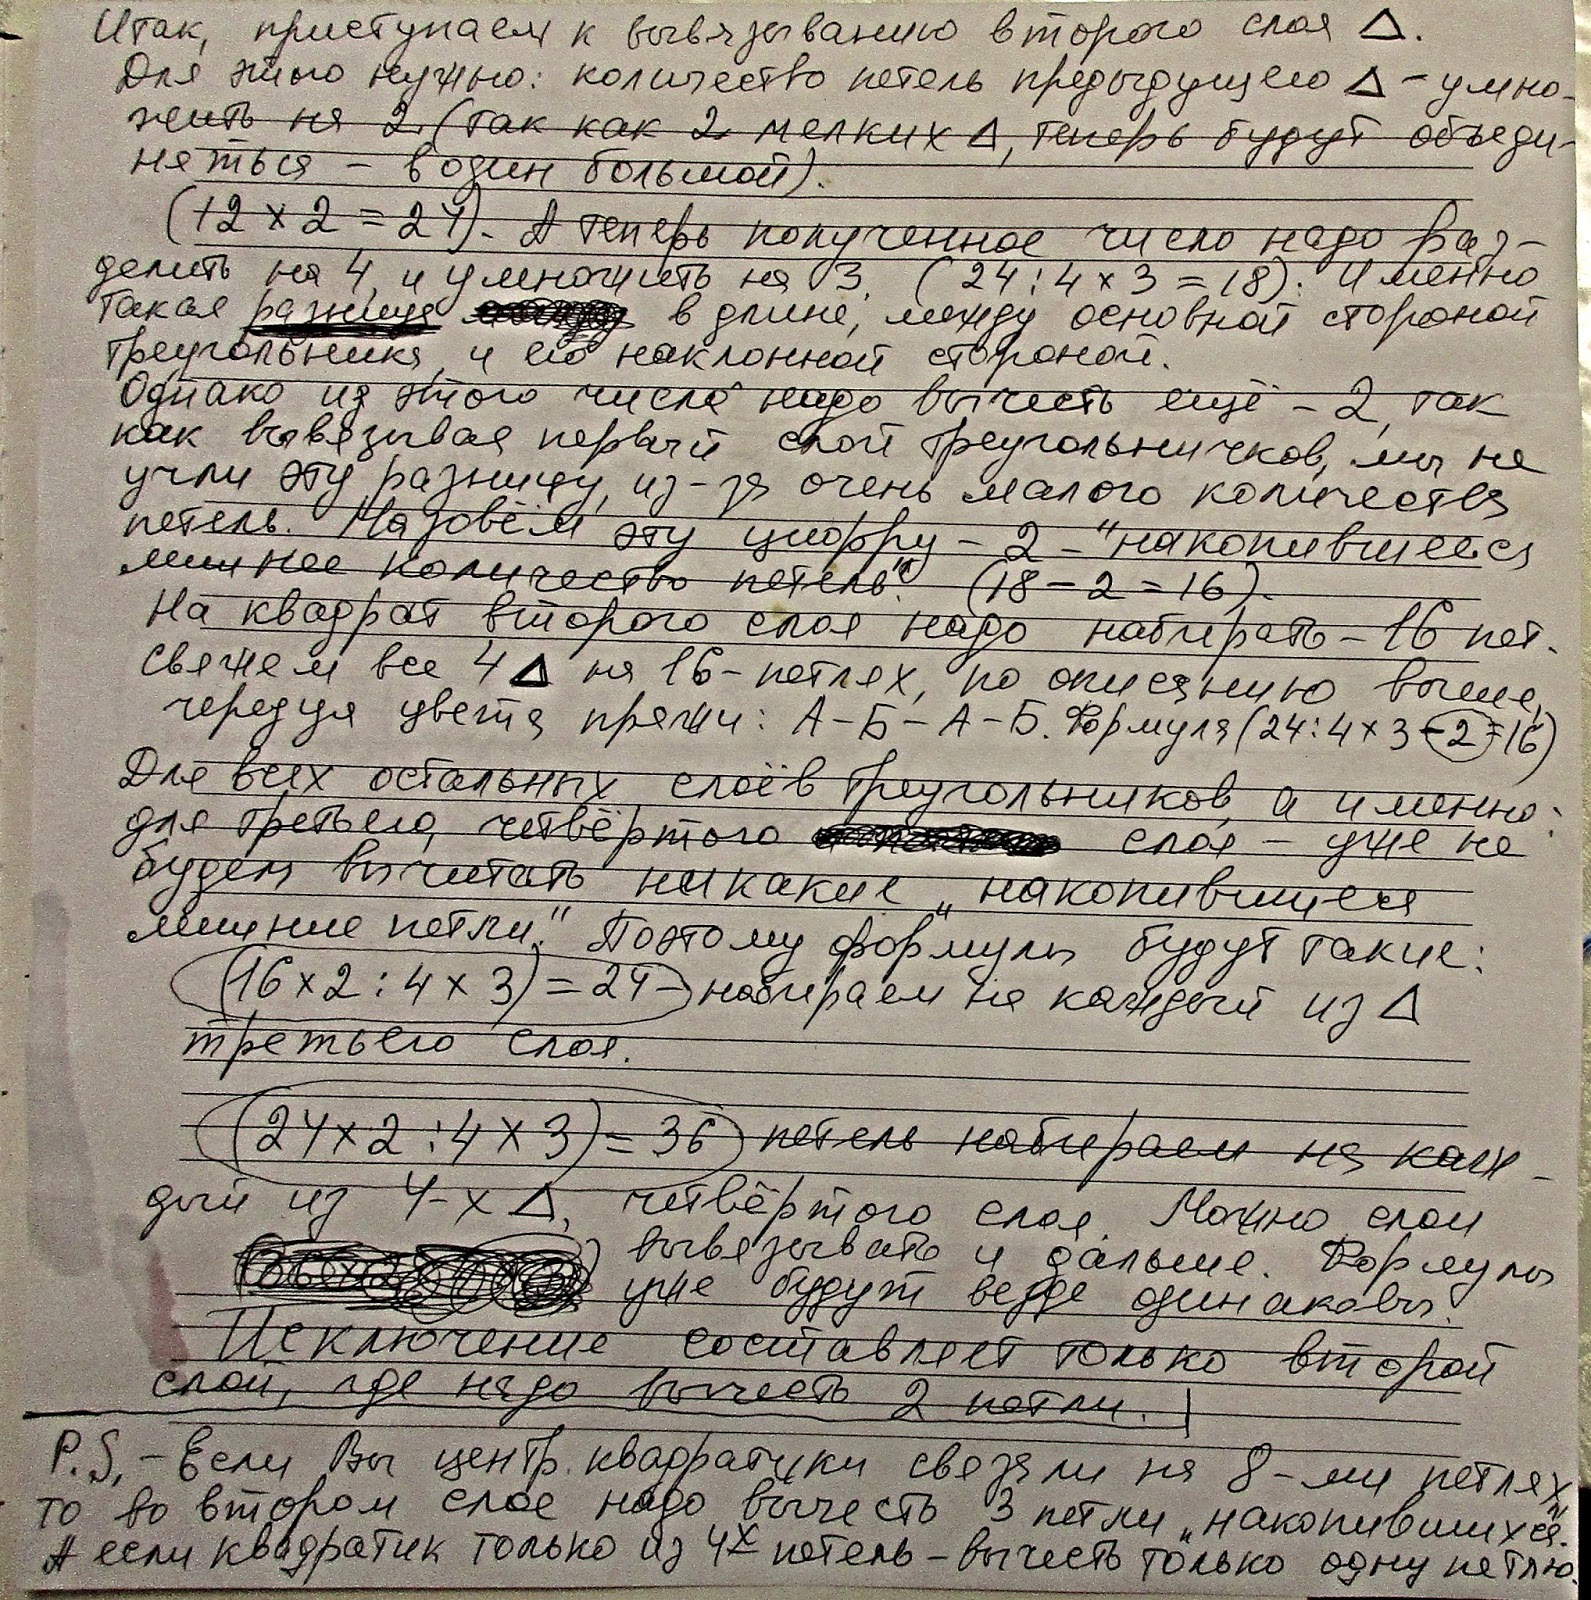 Итак, приступаем к вывязыванию второго слоя Δ.
Для этого нужно: количество петель предыдущего Δ - умно-
жить на 2 (так как 2 мелких Δ, теперь будут объеди-
няться - в один большой).
(12 × 2 = 24). А теперь полученное число надо раз-
делить на 4, и умножить на 3. (24 : 4 × 3 = 18). Именно
такая разница в длине, между основной стороной
треугольника, и его наклонной стороной.
Однако из этого числа надо вычесть ещё - 2, так
как вывязывая первый слой треугольничков, мы не
учли эту разницу, из-за очень малого количества
петель. Назовём эту цифру - 2 - "накопившееся
лишнее количество петель". (18 - 2 = 16).
На квадрат второго слоя надо набирать - 16 пет.
Свяжем все 4 Δ на 16-петлях, по описанию выше,
чередуя цвета пряжи: А - Б - А - Б. Формула (24 : 4 × 3 - 2 = 16)
Для всех остальных слоёв треугольников, а именно:
для третьего, четвёртого слоя - уже не
будем вычитать никакие "накопившиеся
лишние петли." Поэтому формулы будут такие:
(16 × 2 : 4 × 3) = 24 - набираем на каждый из Δ
третьего слоя.
(24 × 2 : 4 × 3) = 36 петель набираем на каж-
дый из 4-х Δ, четвёртого слоя. Можно слои
вывязывать и дальше. Формулы
уже будут везде одинаковы.
Исключение составляет только второй
слой, где надо вычесть 2 петли.
P.S. - Если Вы центр. квадратики связали на 8-ми петлях,
то во втором слое надо вычесть 3 петли "накопившихся".
А если квадратик только из 4х петель - вычесть только одну петлю.